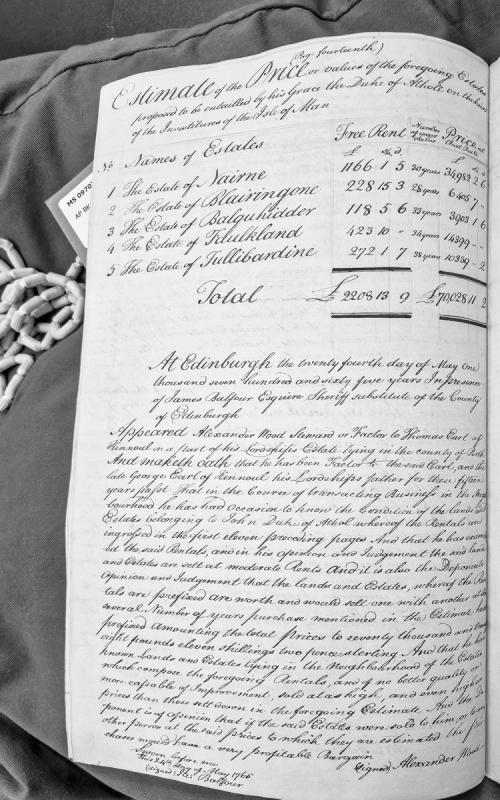 (Pag: fourteenth)
Estimate of the Price or values of the foregoing Estates
proposed to be entailled by his Grace the Duke of Athole on the heirs
of the Investitures of the Isle of Man
No. Names of Estates Free Rent Number of years Price at
£ s. d. £ s. d.
1 The Estate of Nairne 1166 1 5 30 years 34982 2 6
2 The Estate of Blairingone 228 15 3 28 years 6405 7 -
3 The Estate of Balquhidder 118 5 6 33 years 3903 1 6
4 The Estate of Falukland 423 10 " 34 years 14399 - -
5 The Estate of Tullibardine 272 1 7 38 years 10339 - 2
Total £ 2208 13 9 £70,028 11 2
MS 0970
AP BK
At Edinburgh the twenty fourth day of May One
thousand seven hundred and sixty five years In presence
of James Balfour Esquire Sheriff substitute of the County
of Edinburgh
Appeared Alexander Wood Steward or Factor to Thomas Earl of
Kinnoul in a part of his Lordships Estate lying in the county of Perth
And maketh oath that he has been Factor to the said Earl, and the
late George Earl of Kinnoul his Lordships father for these fifteen
years past That in the Course of transacting Business in the
bourhood he has had occasion to know the Condition of the lands and
Estates belonging to John Duke of Athol whereof the Rentals are
ingrossed in the first eleven preceding pages And that he has
ed the said Rentals, and in his opinion and Judgement the said lands
and Estates are sett at moderate Rents And it is also the Deponents
Opinion and Judgement that the lands and Estates, whereof the Ren
tals are prefixed are worth and would sell one with another at the
several Number of years purchase mentioned in the Estimat
prefixed amounting the total prices to seventy thousand and twenty
eight pounds eleven shillings two pence sterling And that he has
known Lands and Estates lying in the Neighbourhood of the Estates
which compose the foregoing Rentals, and of no better quality or
more capable of Improvement, sold at as high, and even higher
prices than those sett down in the foregoing Estimate And the De
ponent is of opinion that if the said Estates were sold to him, or to any
other person at the said prices to which they are estimated the pur
chaser would have a very profitable Bargain
Sworn before me (signed) Alexander Wood
this 24th day of May 1765
(signed) Ja: Balfour